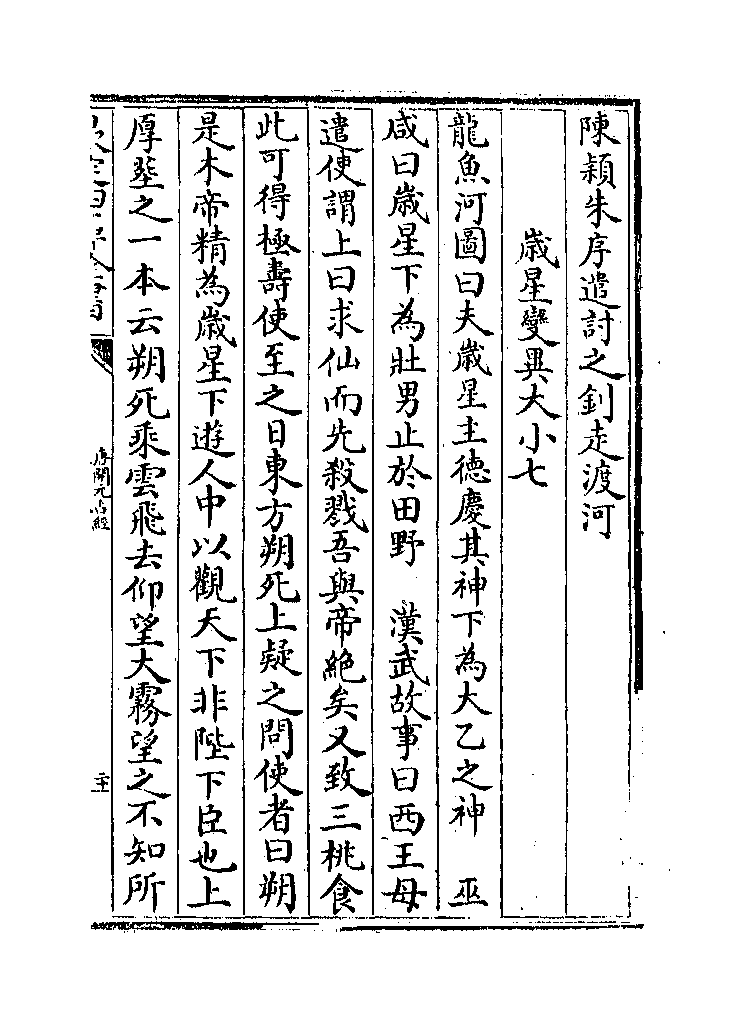 陳潁朱序遣討之釗走渡河
歲星變異大小七
龍魚河圖曰夫歲星主德慶其神下為大乙之神　巫
咸曰歲星下為壯男止於田野　漢武故事曰西王母
遣使謂上曰求仙而先殺戮吾與帝絶矣又致三桃食
此可得極壽使至之日東方朔死上疑之問使者曰朔
是木帝精為歲星下遊人中以觀天下非陛下臣也上
厚塟之一本云朔死乘雲飛去仰望大霧望之不知所
唐開元占經